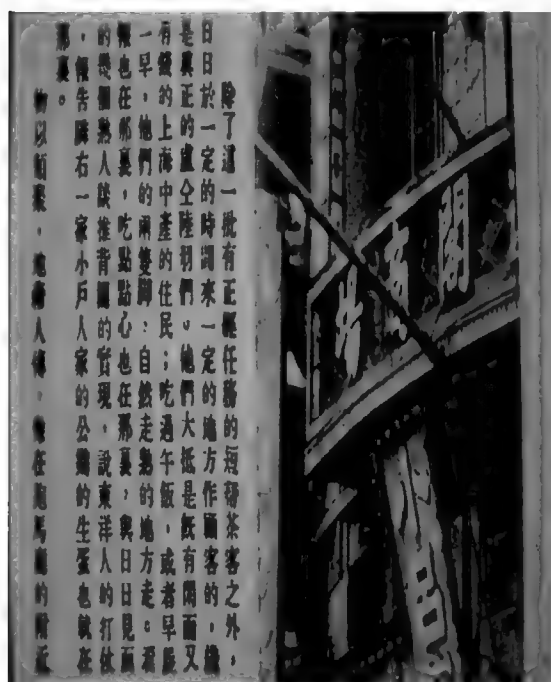 除了這一批有正經任務的短幫茶客之外，
日日於一定的時間來一定的地方作顧客的，纔
是眞正的盧仝陸羽們。他們大抵是旣有閒而又
有錢的上海中產的住民；吃過午飯，或者早晨
一早，他們的兩雙脚，自然走熟的地方走。看
報也在那裏，吃點點心也在那裏，與日日見面
的幾個熟人談推背圖的實現，說東洋人的打仗
，報告隣右一家小戶人家的公鷄的生蛋也就在
那裏。
物以類聚，地藉人傳，像在跑馬廳的附近
閣